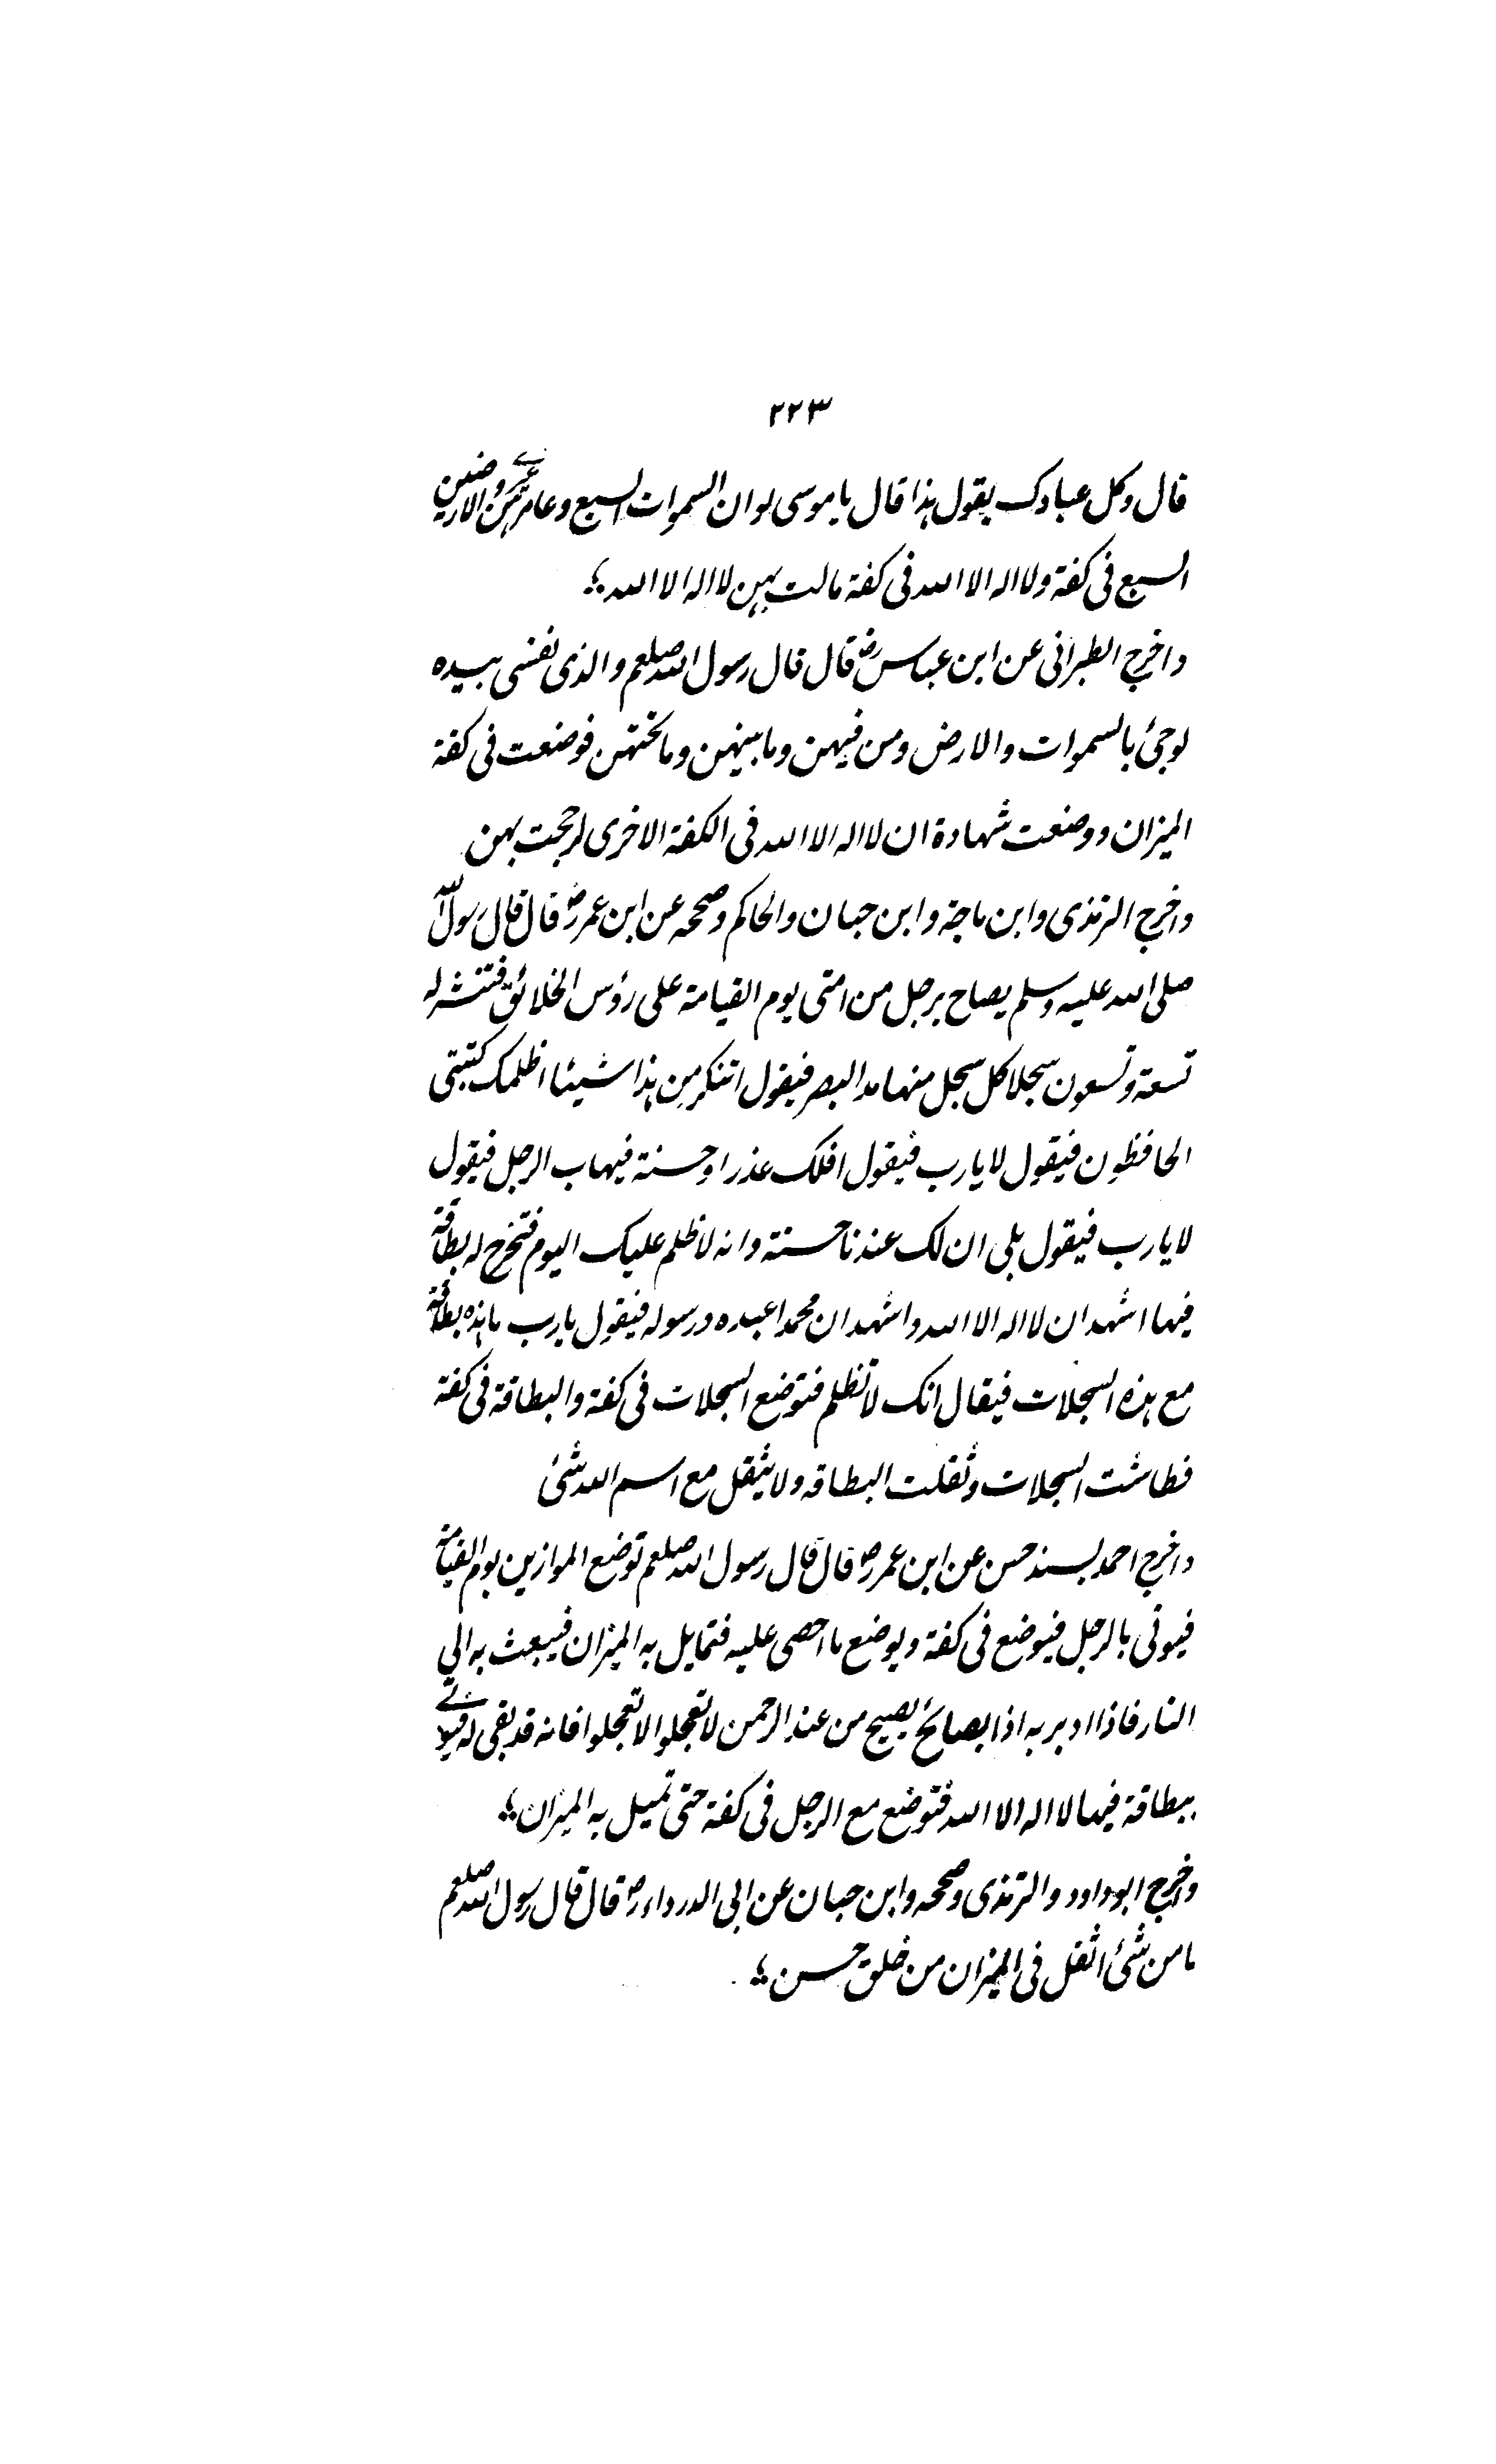 ٢٢٣
قال وكل عبادك يقول هذا قال يا موسى لو ان السموات السبع وعامرهن غيرى والارضين
السبع فى كفة ولا اله الا الله فى كفة مالت بهن لا اله الا الله ؛
واخرج الطبرانى عن ابن عباس رض قال قال رسول الله صلعم والذى نفسى بيده
لو جئ بالسموات والارض ومن فيهن وما بينهن وما تحتهن فوضعت فى كفة
الميزان ووضعت شهادة ان لا اله الا الله فى الكفة الاخرى لرجحت بهن
واخرج الترمذى وابن ماجة وابن حبان والحاكم وصححه عن ابن عمر رض قال قال رسول الله
صلى الله عليه وسلم يصاح برجل من امتى يوم القيامة على رؤس الخلائق فتنشر له
تسعة وتسعون سجلا كل سجل منها مد البصر فيقول اتنكر من هذا شيئا اظلمك كتبتى
الحافظون فيقول لا يا رب فيقول افلك عذر او حسنة فيهاب الرجل فيقول
لا يا رب فيقول بلى ان لك عندنا حسنة وانه لا ظلم عليك اليوم فتخرج له بطاقة
فيها اشهد ان لا اله الا الله واشهد ان محمدا عبده ورسوله فيقول يا رب ما هذه بطاقة
مع هذه السجلات فيقال انك لا تظلم فتوضع السجلات فى كفة والبطاقة فى كفة
فطاشت السجلات وثقلت البطاقه ولا يثقل مع اسم الله شئ
واخرج احمد بسند حسن عن ابن عمر رض قال قال رسول الله صلعم توضع الموازين يوم القيامة
فيوتى بالرجل فيوضع فى كفة ويوضع ما احصى عليه فتمايل به الميزان فيبعث به الى
النار فاذا ادبر به اذا بصائح يصيح من عند الرحمن لا تعجلوا لا تعجلوا فانه قد بقى له فيوتى
ببطاقة فيها لا اله الا الله فتوضع مع الرجل فى كفة حتى تميل به الميزان ؛
واخرج ابو داود والترمذى وصححه وابن حبان عن ابى الدرداء رض قال قال رسول الله صلعم
ما من شئ اثقل فى الميزان من خلق حسن ؛